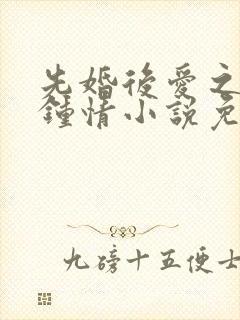 先婚後愛之
鍾情小說免
九磅十五便士